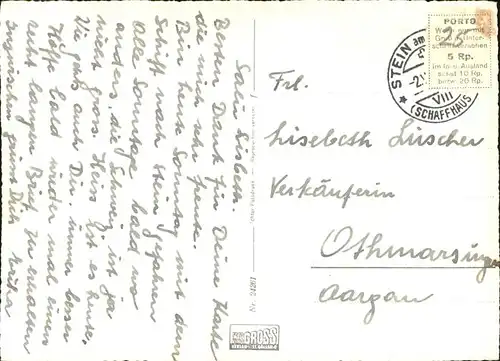 Salü Lisbeth.
Besten Dank für Deine Karte
die mich sehr freute.
Bin heute Sonntag mit dem
Schiff nach Stein gefahren
Alle Sonntage bald wo
anders, die Schweiz ist ja
nicht gross. Heiss ist es heute.
Wie gehts auch Dir, immer besser
Hoffe bald wieder mal einen
recht langen Brief zu erhalten
grüsst Dich
Frl.
Liselbeth Lüscher
Verkäuferin
Othmarsingen
Aargau
PORTO
5 Rp.
STEIN am
VIII
(SCHAFFHAUS
25
Nr. 24261
GROSS